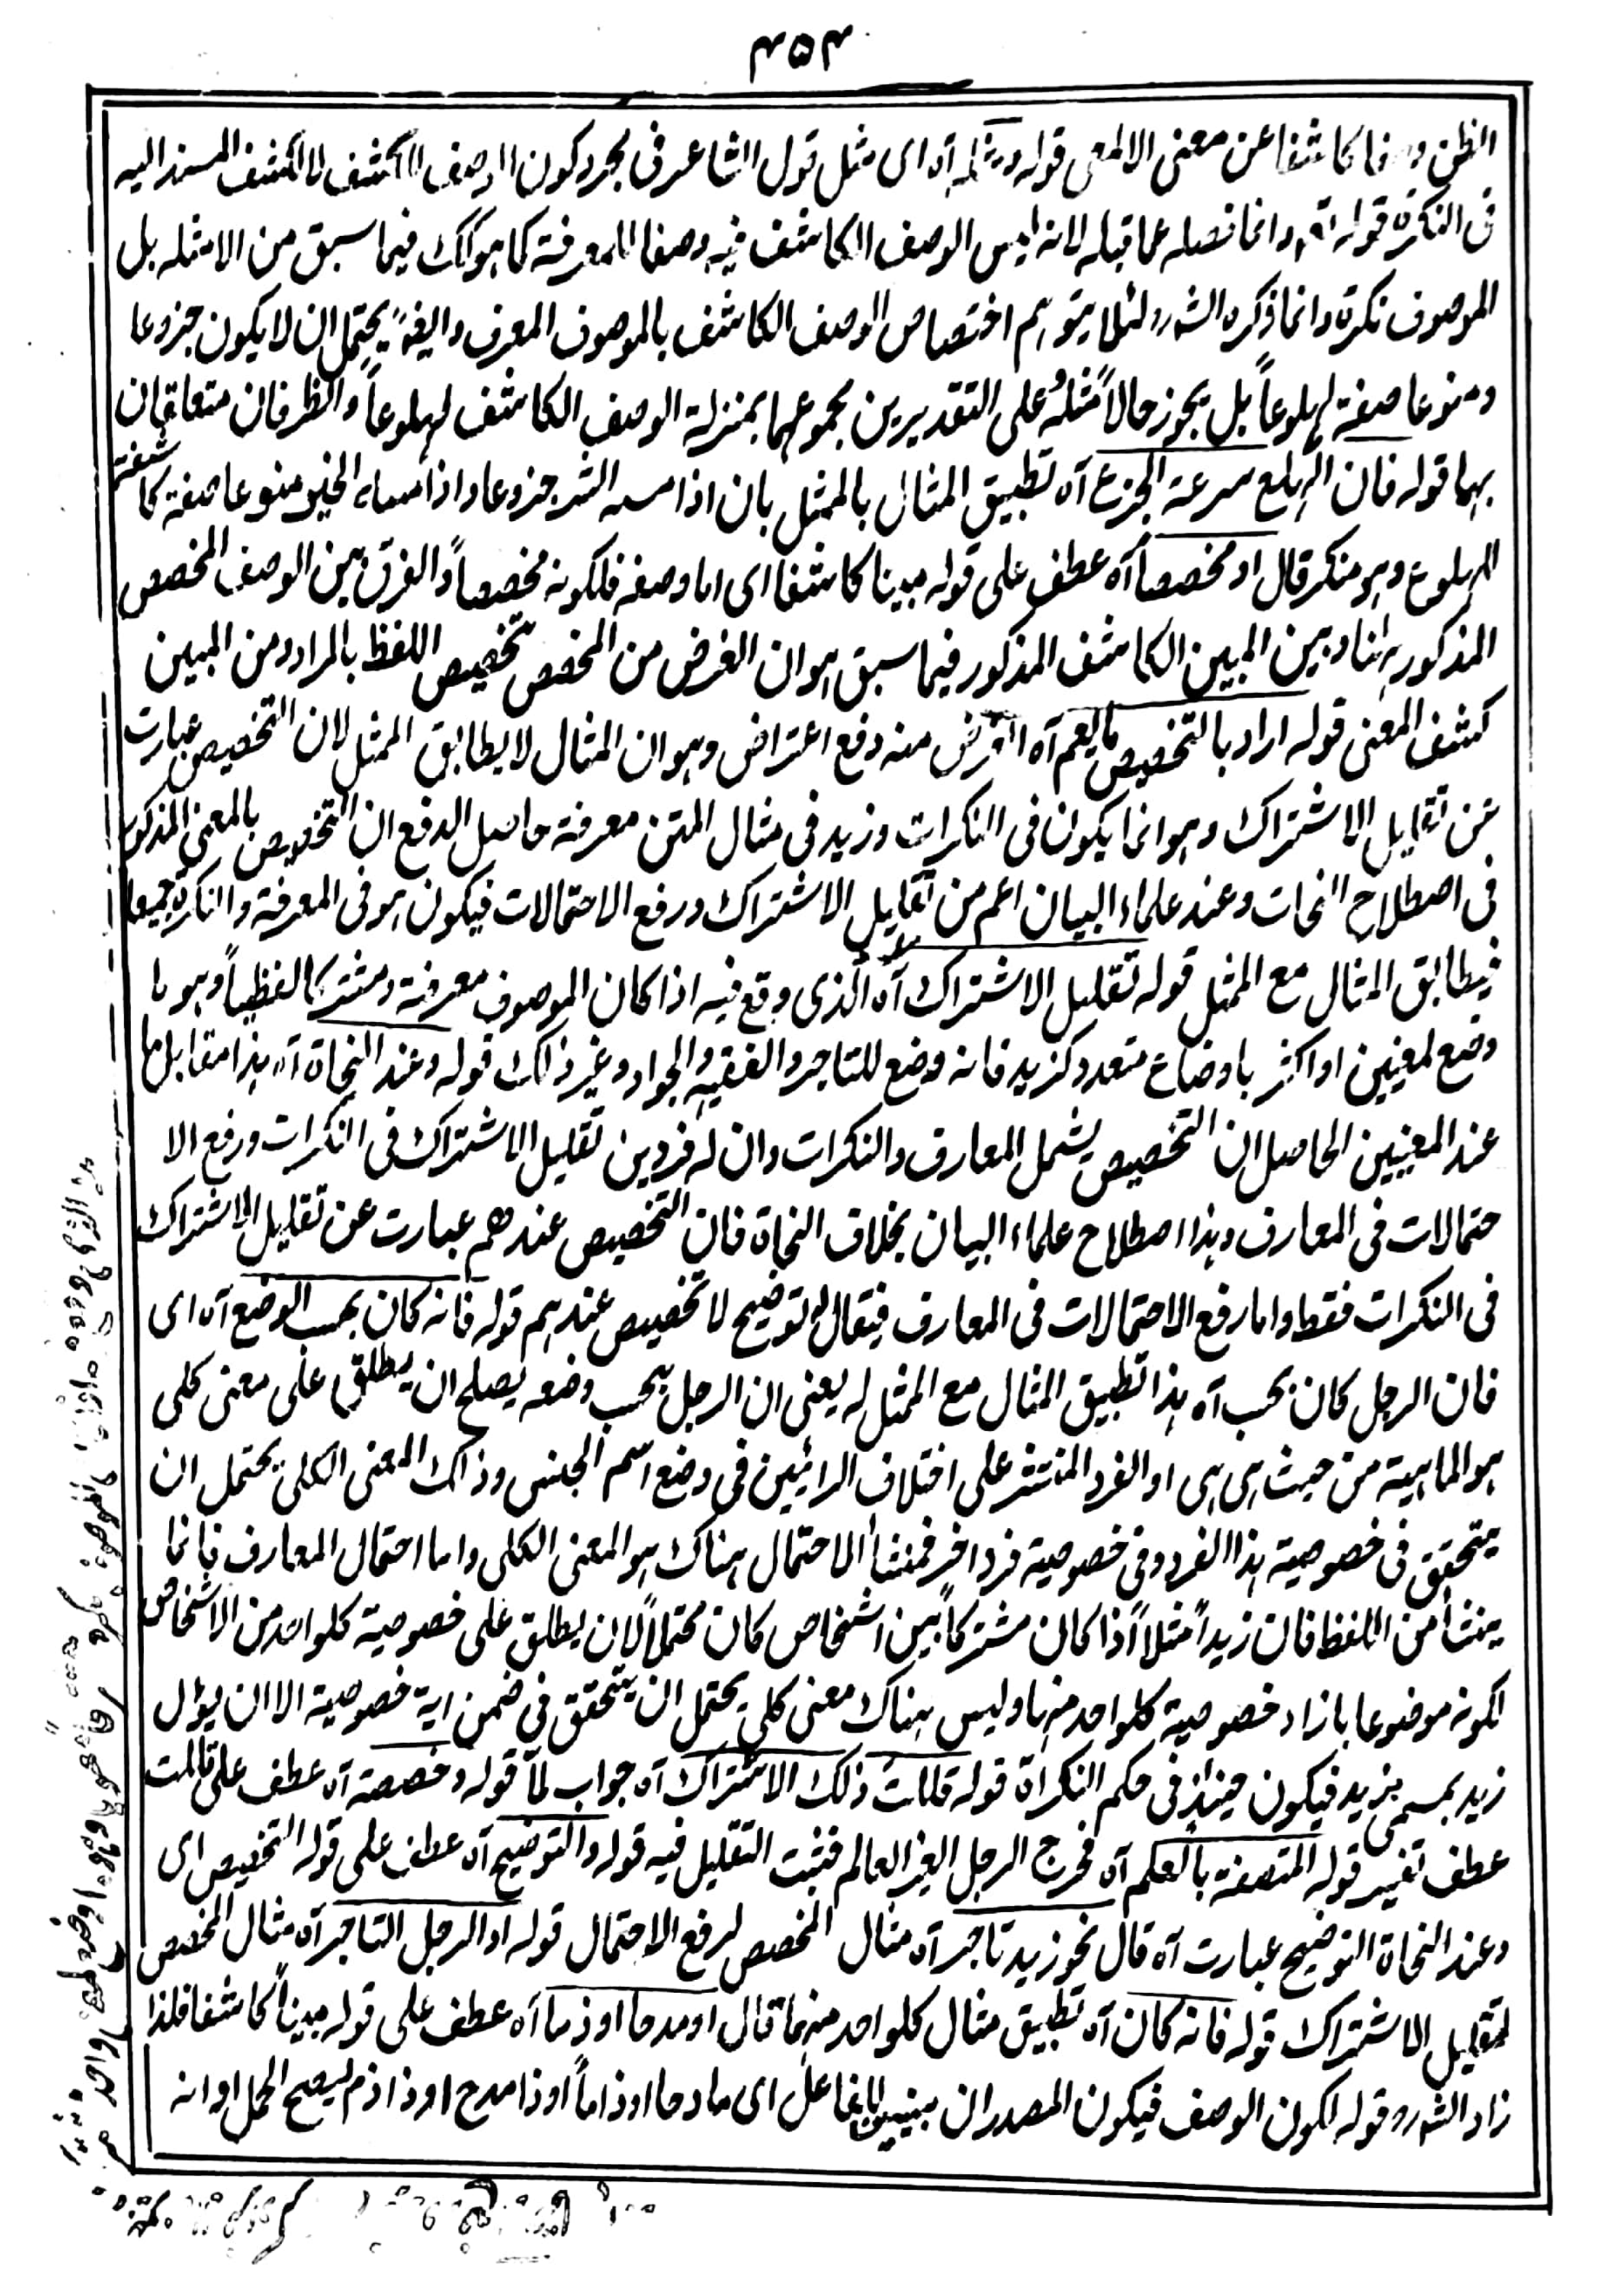 ۴۵۴
الظن وصفا كاشفا عن معنى الالمعى قوله ومثله آه اى مثل قول الشاعر فى مجرد كون الوصف للكشف لا لكشف المسند اليه
فى النكرة قوله آه وانما فصله عما قبله لانه ليس الوصف الكاشف فيه وصفا للمعرفة كما هو كك فيما سبق من الامثله بل
الموصوف نكرة وانما ذكره الشهر لئلا يتوهم اختصاص الوصف الكاشف بالموصوف المعرف وايضًا يحتمل ان لا يكون جزوعا
ومنوعا صفة لهلوعاً بل يجوز حالاً مثله على التقديرين مجموعهما بمنزلة الوصف الكاشف لهلوعاً والظرفان متعلقان
بهما قوله فان الهلع سرعة الجزع آه تطبيق المثال بالممثل بان اذا مسه الشر جزوعا واذا مسه الخير منوعا صفة كاشفة
الهلوع وهو منكر قال او مخصصاً آه عطف على قوله مبينا كاشفا اى اما وصفه فلكونه مخصصاً والفرق بين الوصف المخصص
المذكور ههنا وبين المبين الكاشف المذكور فيما سبق هو ان الغرض من المخصص تخصيص اللفظ بالمراد ومن المبين
كشف المعنى قوله اراد بالتخصيص ما يعم آه الغرض منه دفع اعتراض وهو ان المثال لا يطابق الممثل لان التخصيص عبارت
عن تقليل الاشتراك وهو انما يكون فى النكرات وزيد فى مثال المتن معرفة حاصل الدفع ان التخصيص بالمعنى المذكور
فى اصطلاح النحات وعند علماء البيان اعم من تقليل الاشتراك ورفع الاحتمالات فيكون هو فى المعرفة والنكرة جميعا
فيطابق المثال مع الممثل قوله تقليل الاشتراك آه الذى وقع فيه اذا كان الموصوف معرفة ومشتركا لفظياً وهو ما
وضع لمعنيين او اكثر باوضاع متعدد كزيد فانه وضع للتاجر والفقيه والجواد وغير ذلك قوله وعند النحاة آه هذا مقابل ما
عند المعنيين الحاصل ان التخصيص يشمل المعارف والنكرات وان له فردين تقليل الاشتراك فى النكرات ورفع الا
حتمالات فى المعارف وهذا اصطلاح علماء البيان بخلاف النحاة فان التخصيص عندهم عبارت عن تقليل الاشتراك
فى النكرات فقط واما رفع الاحتمالات فى المعارف فيقال له توضيح لا تخصيص عندهم قوله فانه كان بحسب الوضع آه اى
فان الرجل كان بحسب آه هذا تطبيق المثال مع الممثل له يعنى ان الرجل بحسب وضعه يصلح ان يطلق على معنى كلى
هو الماهية من حيث هى هى او الفرد المنتشر على اختلاف الرائيين فى وضع اسم الجنس وذلك المعنى الكلى يحتمل ان
يتحقق فى خصوصية هذا الفرد وفى خصوصية فرد اخر فمنشأ الاحتمال هناك هو المعنى الكلى واما احتمال المعارف فانما
ينشأ من اللفظ فان زيداً مثلاً اذا كان مشتركاً بين اشخاص كان محتملاً لان يطلق على خصوصية كلواحد من الاشخاص
لكونه موضوعا بازاء خصوصية كلواحد منها وليس هناك معنى كلى يحتمل ان يتحقق فى ضمن اية خصوصية الا ان يؤل
زيد بمسمى بزيد فيكون حينئذ فى حكم النكراة قوله قللت ذلك الاشتراك آه جواب لمّا قوله وخصصته آه عطف على قللت
عطف تفسير قوله المتصفة بالعلم آه فخرج الرجل الغير العالم فثبت التقليل فيه قوله والتوضيح آه عطف على قوله التخصيص اى
وعند النحاة التوضيح عبارت آه قال نحو زيد تاجر آه مثال المخصص لرفع الاحتمال قوله او الرجل التاجر آه مثال المخصص
لتقليل الاشتراك قوله فانه كان آه تطبيق مثال كلواحد منهما قال او مدحا او ذما آه عطف على قوله مبيناً كاشفا فلذا
زاد الشهر وقوله لكون الوصف فيكون المصدران مبنيين للفاعل اى مادحا او ذاماً او ذا مدح او ذا ذم ليصح الحمل او انه